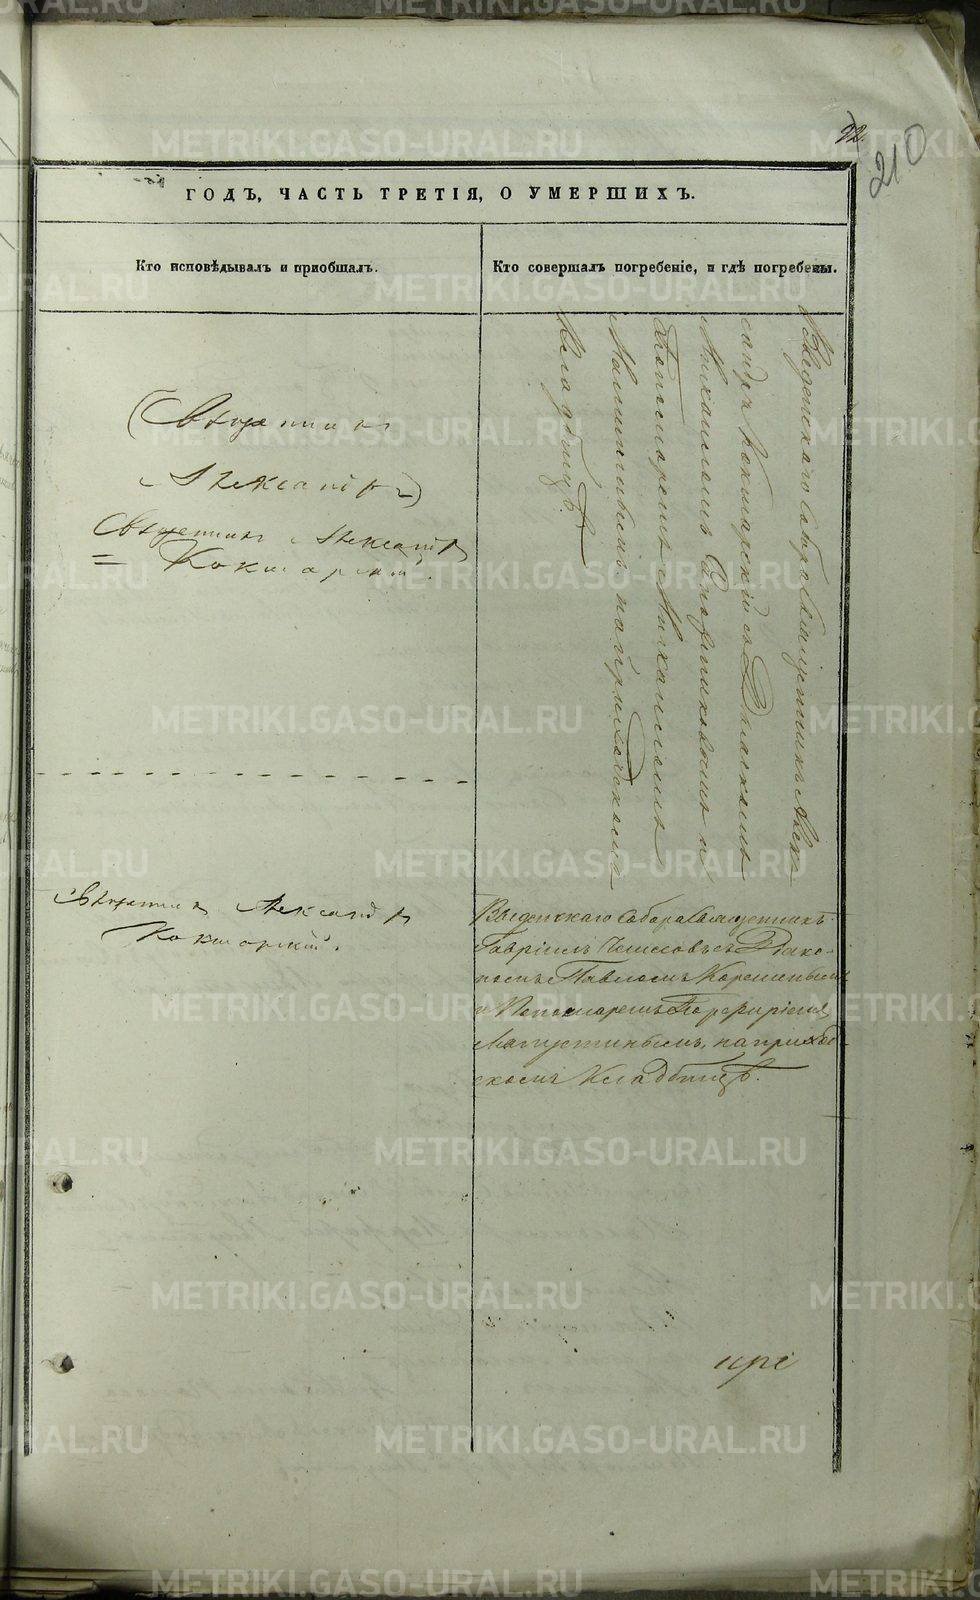 22.
210
ГОДЪ, ЧАСТЬ ТРЕТІЯ, О УМЕРШИХЪ.
Кто исповѣдывалъ и приобщалъ.
Кто совершалъ погребеніе, и гдѣ погребены.
(Священникъ
Александръ)
Священникъ Александръ
= Кокшарскій.
Введенскаго Собора Священникъ Алек
сандръ Кокшарскій съ Діакономъ
Михаиломъ и
Пономаремъ Михаиломъ
на приходскомъ
Кладбищѣ.
Священникъ Александръ
Кокшарскій.
Введенскаго Собора Священникъ
Гавріилъ съ Діако-
номъ Павломъ
и Пономаремъ Порфиріемъ
на приход-
скомъ Кладбищѣ.
METRIKI.GASO-URAL.RU